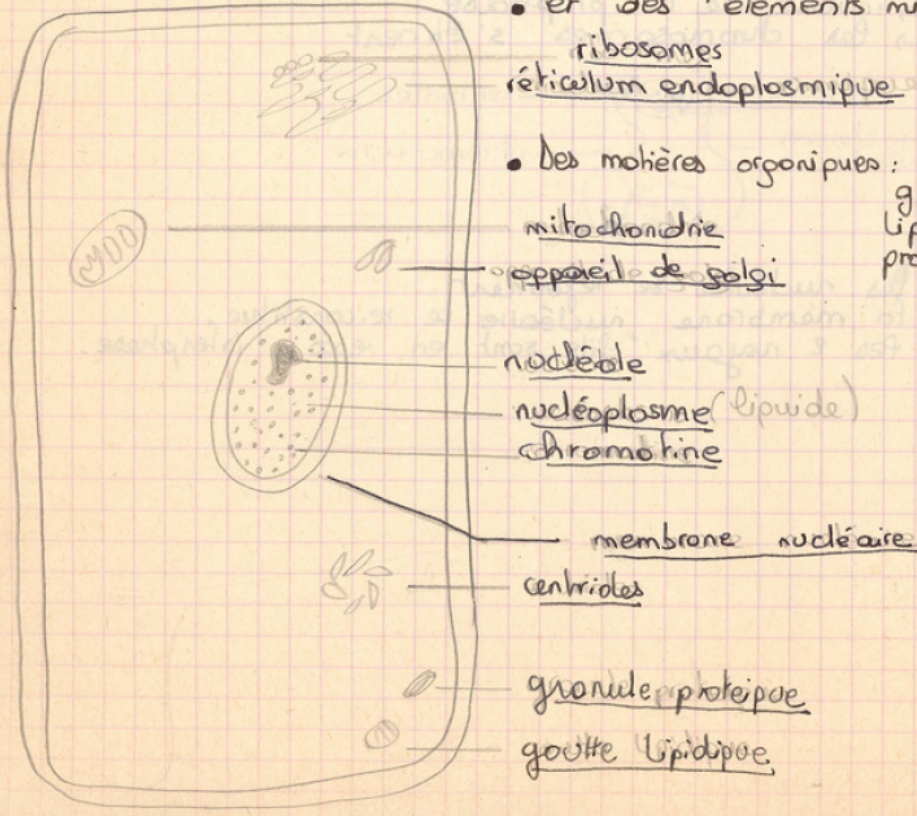 • et des éléments
ribosomes
réticulum endoplasmique
• Des matières organiques :
mitochondrie
appareil de golgi
nucléole
nucléoplasme (liquide)
chromatine
membrane nucléaire
centrioles
granule protéique
goutte lipidique